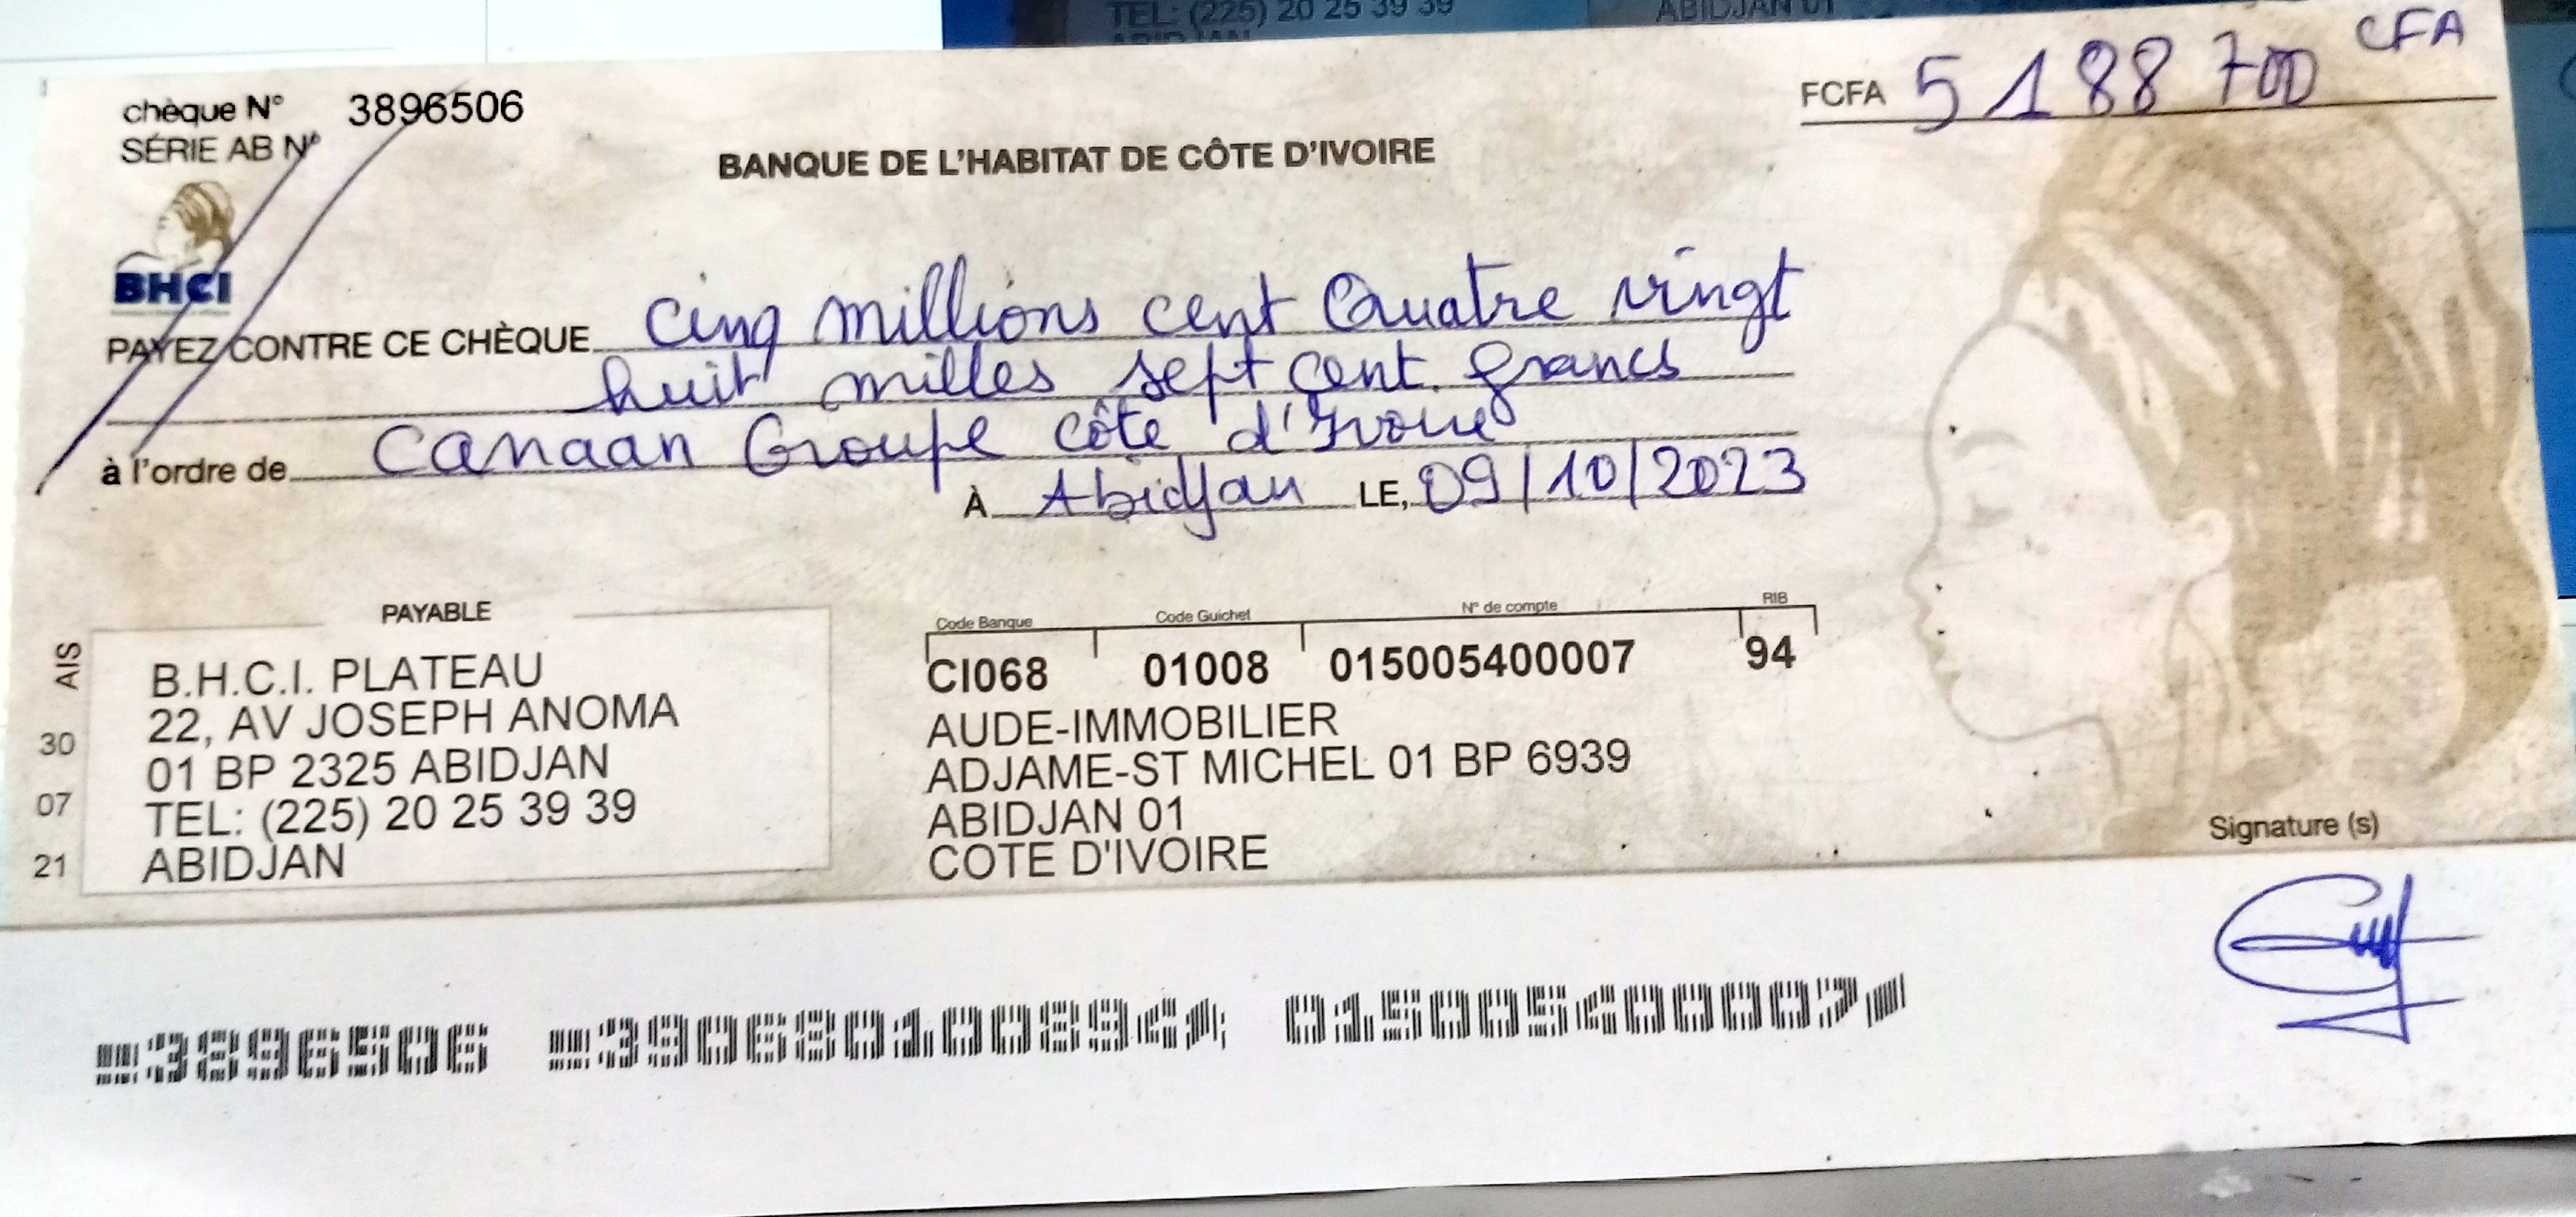 TEL: (225) 20 25 39 39
ABIDJAN
ABIDJAN 01
chèque N° 3896506
SÉRIE AB N°
FCFA 5 188 700 CFA
BANQUE DE L'HABITAT DE CÔTE D'IVOIRE
BHCI
PAYEZ CONTRE CE CHÈQUE cinq millions cent Quatre vingt
huit milles sept cent francs
à l'ordre de Canaan Groupe Côte d'Ivoire
À Abidjan LE, 09/10/2023
PAYABLE
B.H.C.I. PLATEAU
22, AV JOSEPH ANOMA
01 BP 2325 ABIDJAN
TEL: (225) 20 25 39 39
ABIDJAN
AIS
30
07
21
Code Banque Code Guichet N° de compte RIB
CI068 01008 015005400007 94
AUDE-IMMOBILIER
ADJAME-ST MICHEL 01 BP 6939
ABIDJAN 01
COTE D'IVOIRE
Signature (s)
3896506 390680100894 015005400007